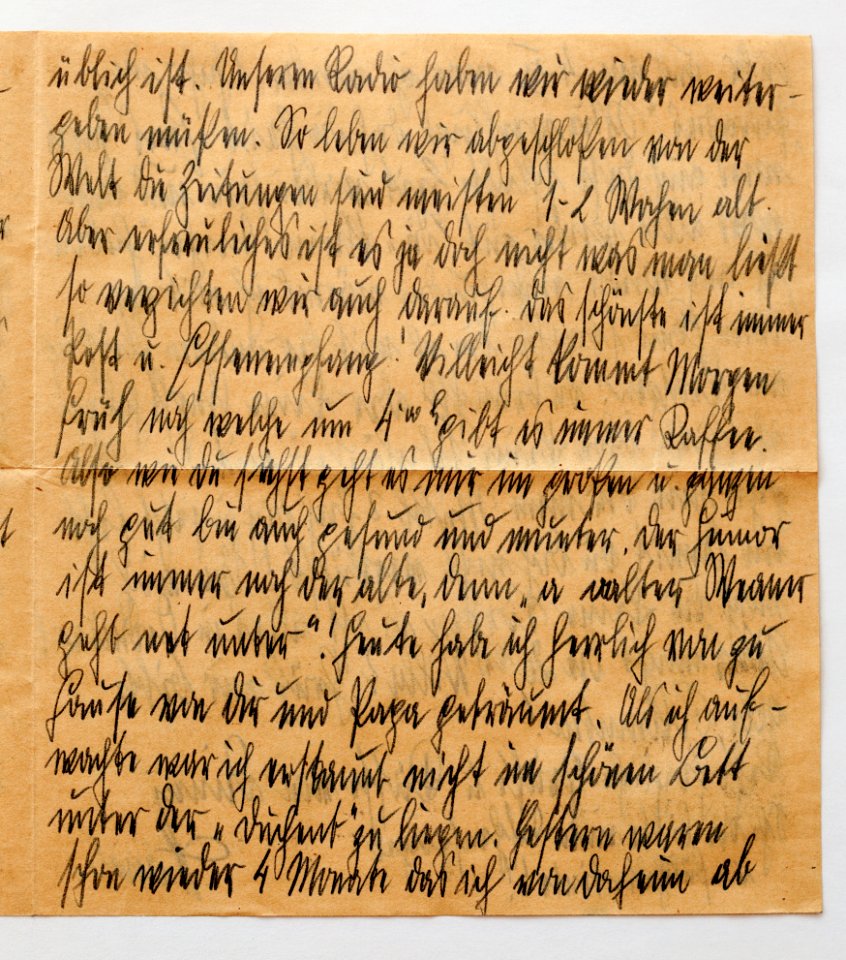 üblich ist. Unseren Radio haben wir wieder weiter-
geben müßen. So leben wir abgeschloßen von der
Welt die Zeitungen sind meisten 1-2 Wochen alt.
Aber erfreuliches ist es ja doch nicht was man ließt
so verzichten wir auch darauf. Das schönste ist immer
Post u. Essenempfang! Villeicht kommt Morgen
früh noch welche um 4 gibt es immer Kaffee.
Also wie du siehst geht es mir im großen u. ganzen
noch gut bin auch gesund und munter. Der Humor
ist immer noch der alte, denn „a aalter Weaner
geht net unter“! Heute habe ich herrlich von zu
Hause von dir und Papa geträumt. Als ich auf-
wachte war ich erstaunt nicht im schönen Bett
unter der „Duchent“ zu liegen. Gestern waren
schon wieder 4 Monate das ich von daheim ab